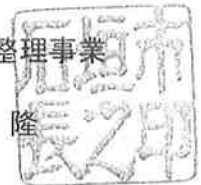 整理事業
隆
石垣市
長之印